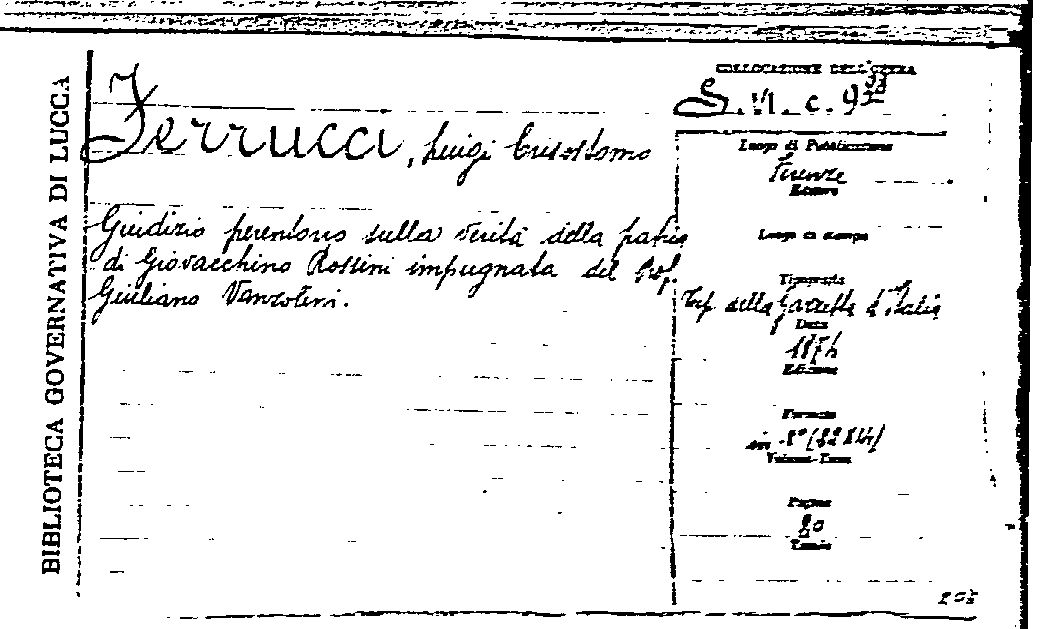 BIBLIOTECA GOVERNATIVA DI LUCCA
Ferrucci, Luigi Crisostomo
Giudizio perentorio sulla verità della patria
di Giovacchino Rossini impugnata dal Prof.
Giuliano Vanzolini.
COLLOCAZIONE DELL'OPERA
Luogo di Pubblicazione
Firenze
Editore
Luogo di stampa
Tipografia
Tip. della Gazzetta d'Italia
Data
1874
Edizione
Formato
in 8°
Volume-Tomo
Pagine
20